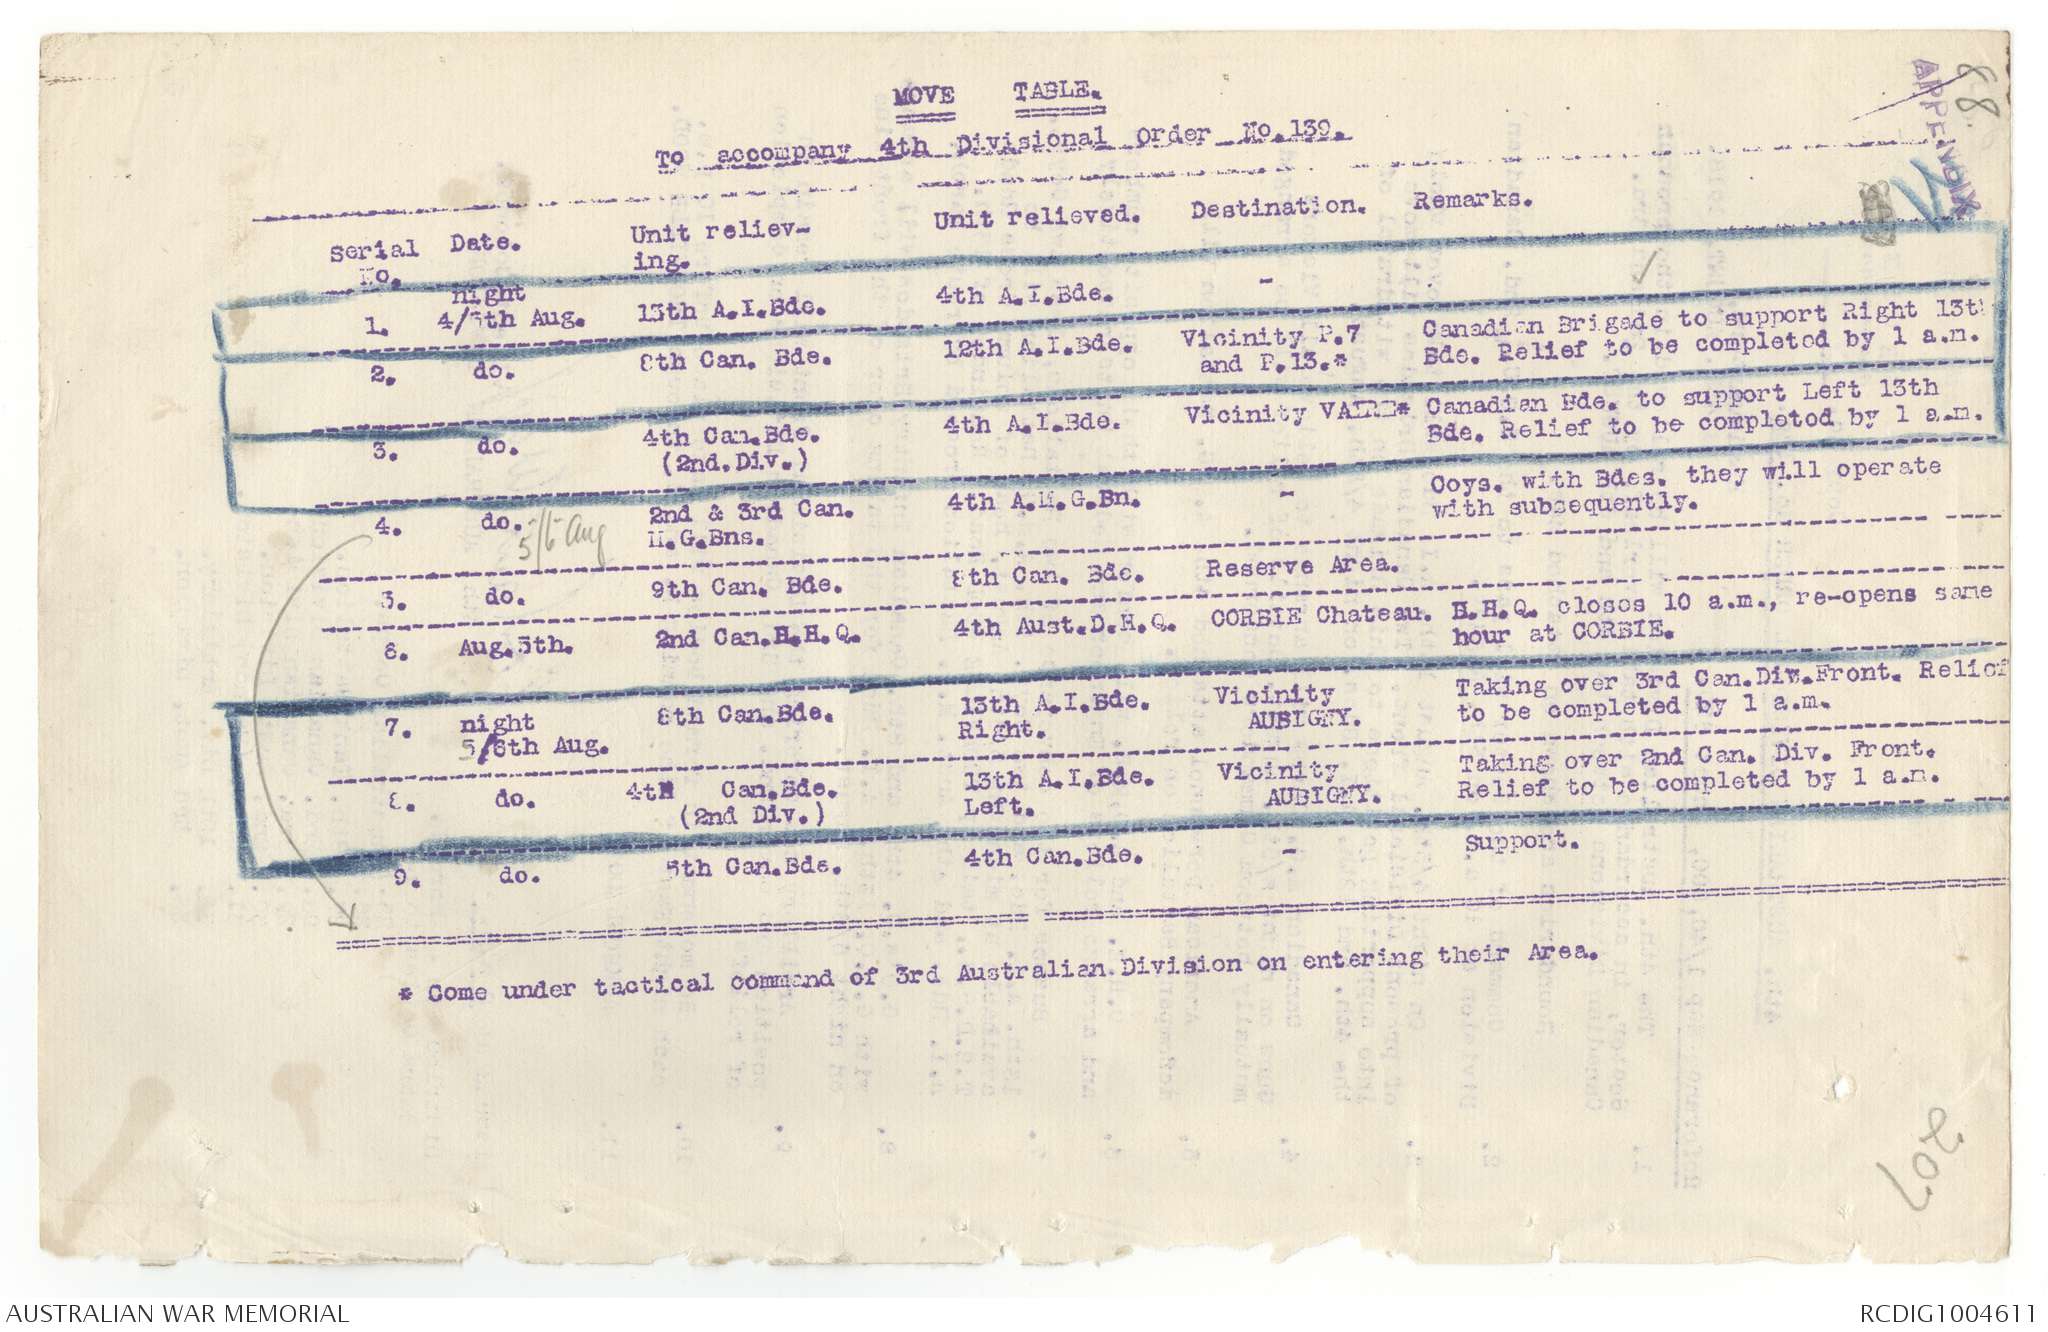 MOVE TABLE.
To accompany 4th Divisional Order No.139.
88
APPENDIX
Serial No. Date. Unit reliev- ing. Unit relieved. Destination. Remarks.
1. night 4/5th Aug. 13th A.I.Bde. 4th A.I.Bde. -
2. do. 8th Can. Bde. 12th A.I.Bde. Vicinity P.7 and P.13.* Canadian Brigade to support Right 13th
Bde. Relief to be completed by 1 a.m.
3. do. 4th Can.Bde. (2nd.Div.) 4th A.I.Bde. Vicinity VAIRE* Canadian Bde. to support Left 13th
Bde. Relief to be completed by 1 a.m.
4. do. 5/6 Aug 2nd & 3rd Can. M.G.Bns. 4th A.M.G.Bn. - Coys. with Bdes. they will operate
with subsequently.
5. do. 9th Can. Bde. 8th Can. Bde. Reserve Area.
6. Aug.5th. 2nd Can.H.H.Q. 4th Aust.D.H.Q. CORBIE Chateau. H.H.Q. closes 10 a.m., re-opens same
hour at CORBIE.
7. night 5/6th Aug. 8th Can.Bde. 13th A.I.Bde. Right. Vicinity AUBIGNY. Taking over 3rd Can.Div.Front. Relief
to be completed by 1 a.m.
8. do. 4th Can.Bde. (2nd Div.) 13th A.I.Bde. Left. Vicinity AUBIGNY. Taking over 2nd Can. Div. Front.
Relief to be completed by 1 a.m.
9. do. 5th Can.Bde. 4th Can.Bde. - Support.
* Come under tactical command of 3rd Australian Division on entering their Area.
207
AUSTRALIAN WAR MEMORIAL
RCDIG1004611